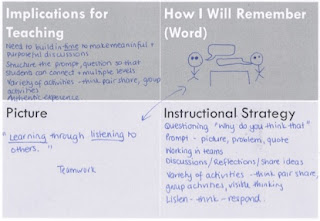 Implications for
Teaching
Need to build in time to make meaningful +
purposeful discussions
Structure the prompt, question so that
students can connect + multiple levels
Variety of activities - think pair share, group
activities
Authentic experience
How I Will Remember
(Word)
Picture
"Learning through listening to
others."
Teamwork
Instructional Strategy
Questioning "Why do you think that"
Prompt - picture, problem, quote
Working in teams
Discussions / Reflections / share ideas
Variety of activities - think pair share,
group activities, visible thinking
Listen - think - respond.